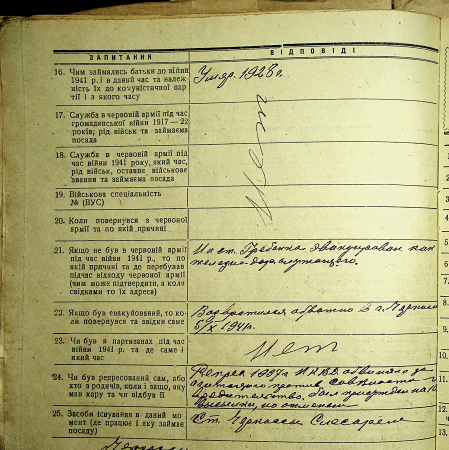 ЗАПИТАННЯ
ВІДПОВІДІ
16. Чим займались батьки до війни
1941 р. і в даний час та належ-
ність їх до комуністичної пар-
тії і з якого часу
Умер. 1928 г.
17. Служба в червоній армії під час
громадянської війни 1917—22
років; рід військ та займаєма
посада
18. Служба в червоній армії під
час війни 1941 року, який час,
рід військ, останнє військове
звання та займаєма посада
Нет
19. Військова спеціальність
№ (ВУС)
20. Коли повернувся з червоної
армії та по якій причині
21. Якщо не був в червоній армії
під час війни 1941 р., то по
якій причині та де перебував
підчас відходу червоної армії
(чим може підтвердити, а коли
свідками то їх адреса)
На ст. Гребенка эвакуирован как
железно-дор. служащего.
22. Якщо був евакуйований, то ко-
ли повернувся та звідки саме
Возвратился обратно в г.
5/X 1941 г.
23. Чи був в партизанах під час
війни 1941 р. та де саме і
який час
Нет
24. Чи був репресований сам, або
хто з родичів, коли і звідо, яку
мав кару та чи відбув її
1937 г. НКВД
против
был
но отменен
25. Засоби існування в даний мо-
мент (де працює і яку займає
посаду)
Ст. Слесарем
5
6
7
8
9
10
11
12
13.